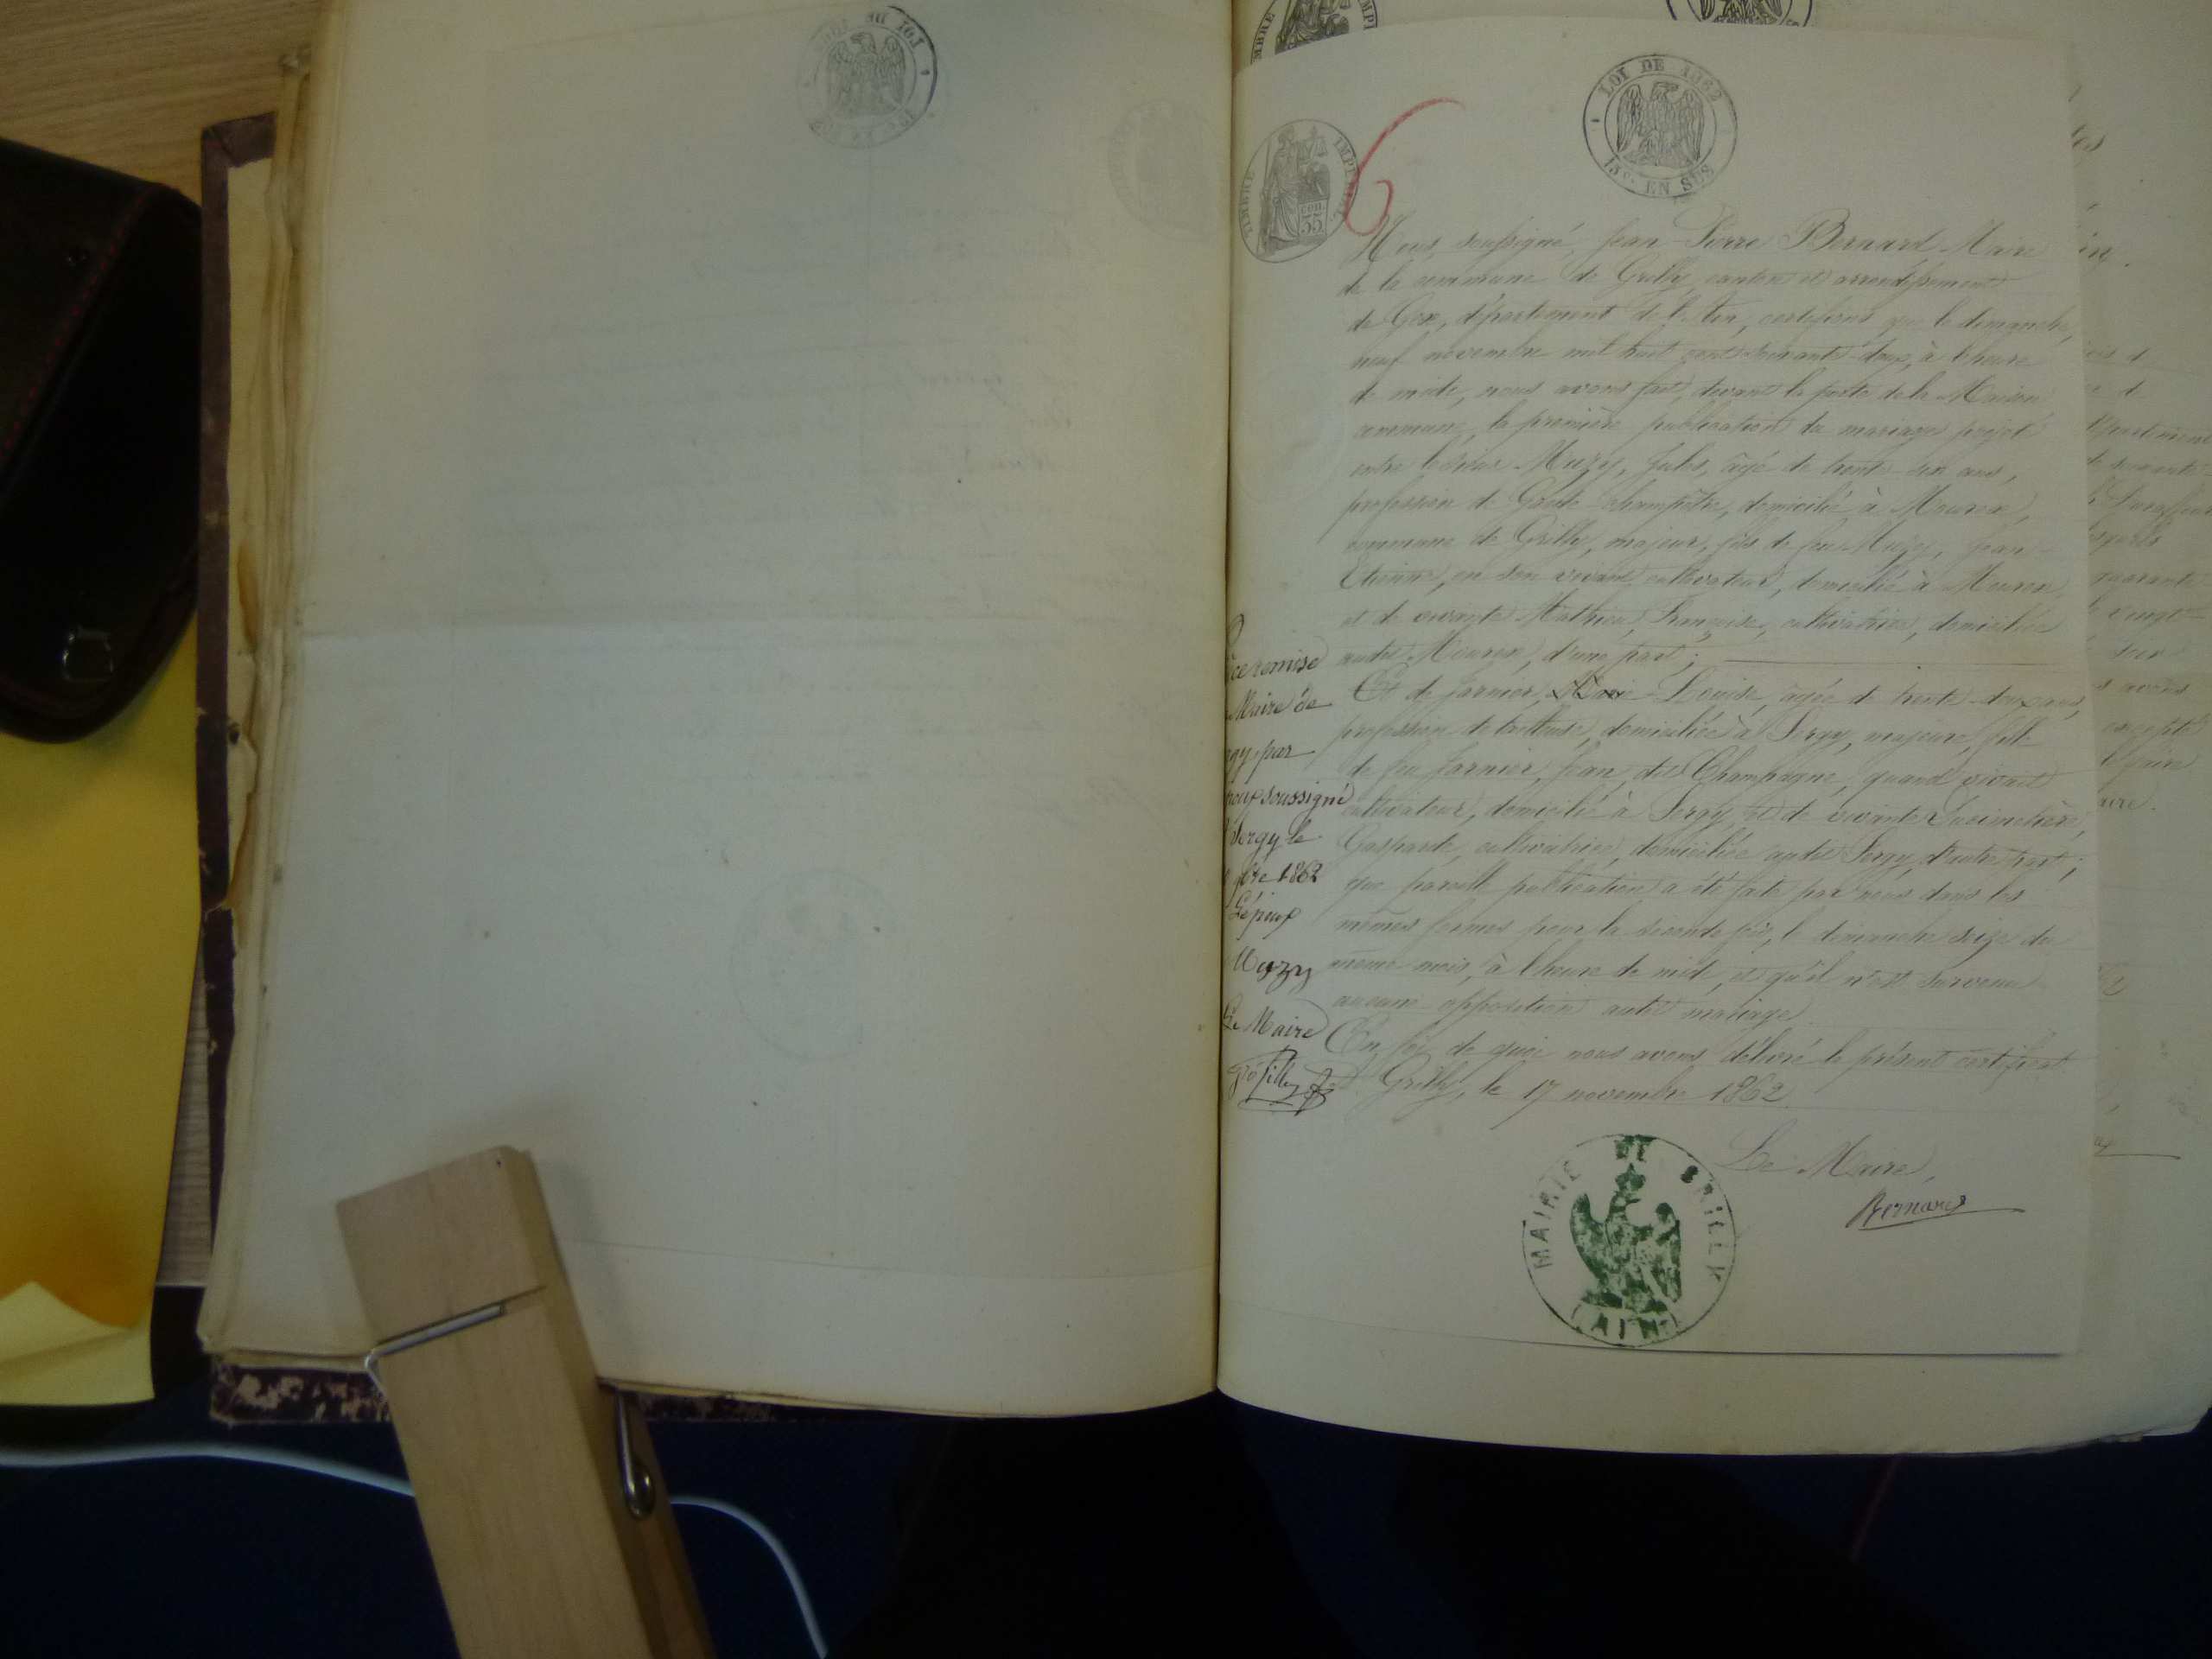 LOI DE 1862
15c. EN SUS
TIMBRE IMPERIAL
CON. 35
6
Nous soussigné, Jean Pierre Bernard Maire
de la commune de Grilly canton et arrondissement
de Gex, département de l'Ain, certifions que le dimanche,
neuf novembre mil huit cent soixante-deux, à l'heure
de midi, nous avons fait, devant la porte de la Maison
commune, la première publication du mariage projeté
entre le sieur Muzy, Jules, âgé de trente six ans,
profession de Garde champêtre, domicilié à Mourex,
commune de Grilly, majeur, fils de feu Muzy, Jean
Etienne, en son vivant cultivateur, domicilié à Mourex,
et de vivante Mathieu, Françoise, cultivatrice, domiciliée
audit Mourex, d'une part;
Et de Jarnier, Marie-Louise, âgée de trente-deux ans,
profession de tailleuse, domiciliée à Sergy, majeure, fille
de feu Jarnier, Jean dit Champagne, quand vivait
cultivateur, domicilié à Sergy et de vivante
Gasparde, cultivatrice, domiciliée audit Sergy, d'autre part;
que pareille publication a été faite par nous dans les
mêmes formes pour la seconde fois, le dimanche seize du
même mois, à l'heure de midi, et qu'il n'est survenu
aucune opposition audit mariage.
En foi de quoi nous avons délivré le présent certificat.
Grilly, le 17 novembre 1862.
Le Maire,
Bernard
MAIRIE DE GRILLY
(AIN)
ce remise
Maire de
gy, par
poux soussigné
Sergy le
9bre 1862
L'époux
Muzy
Le Maire